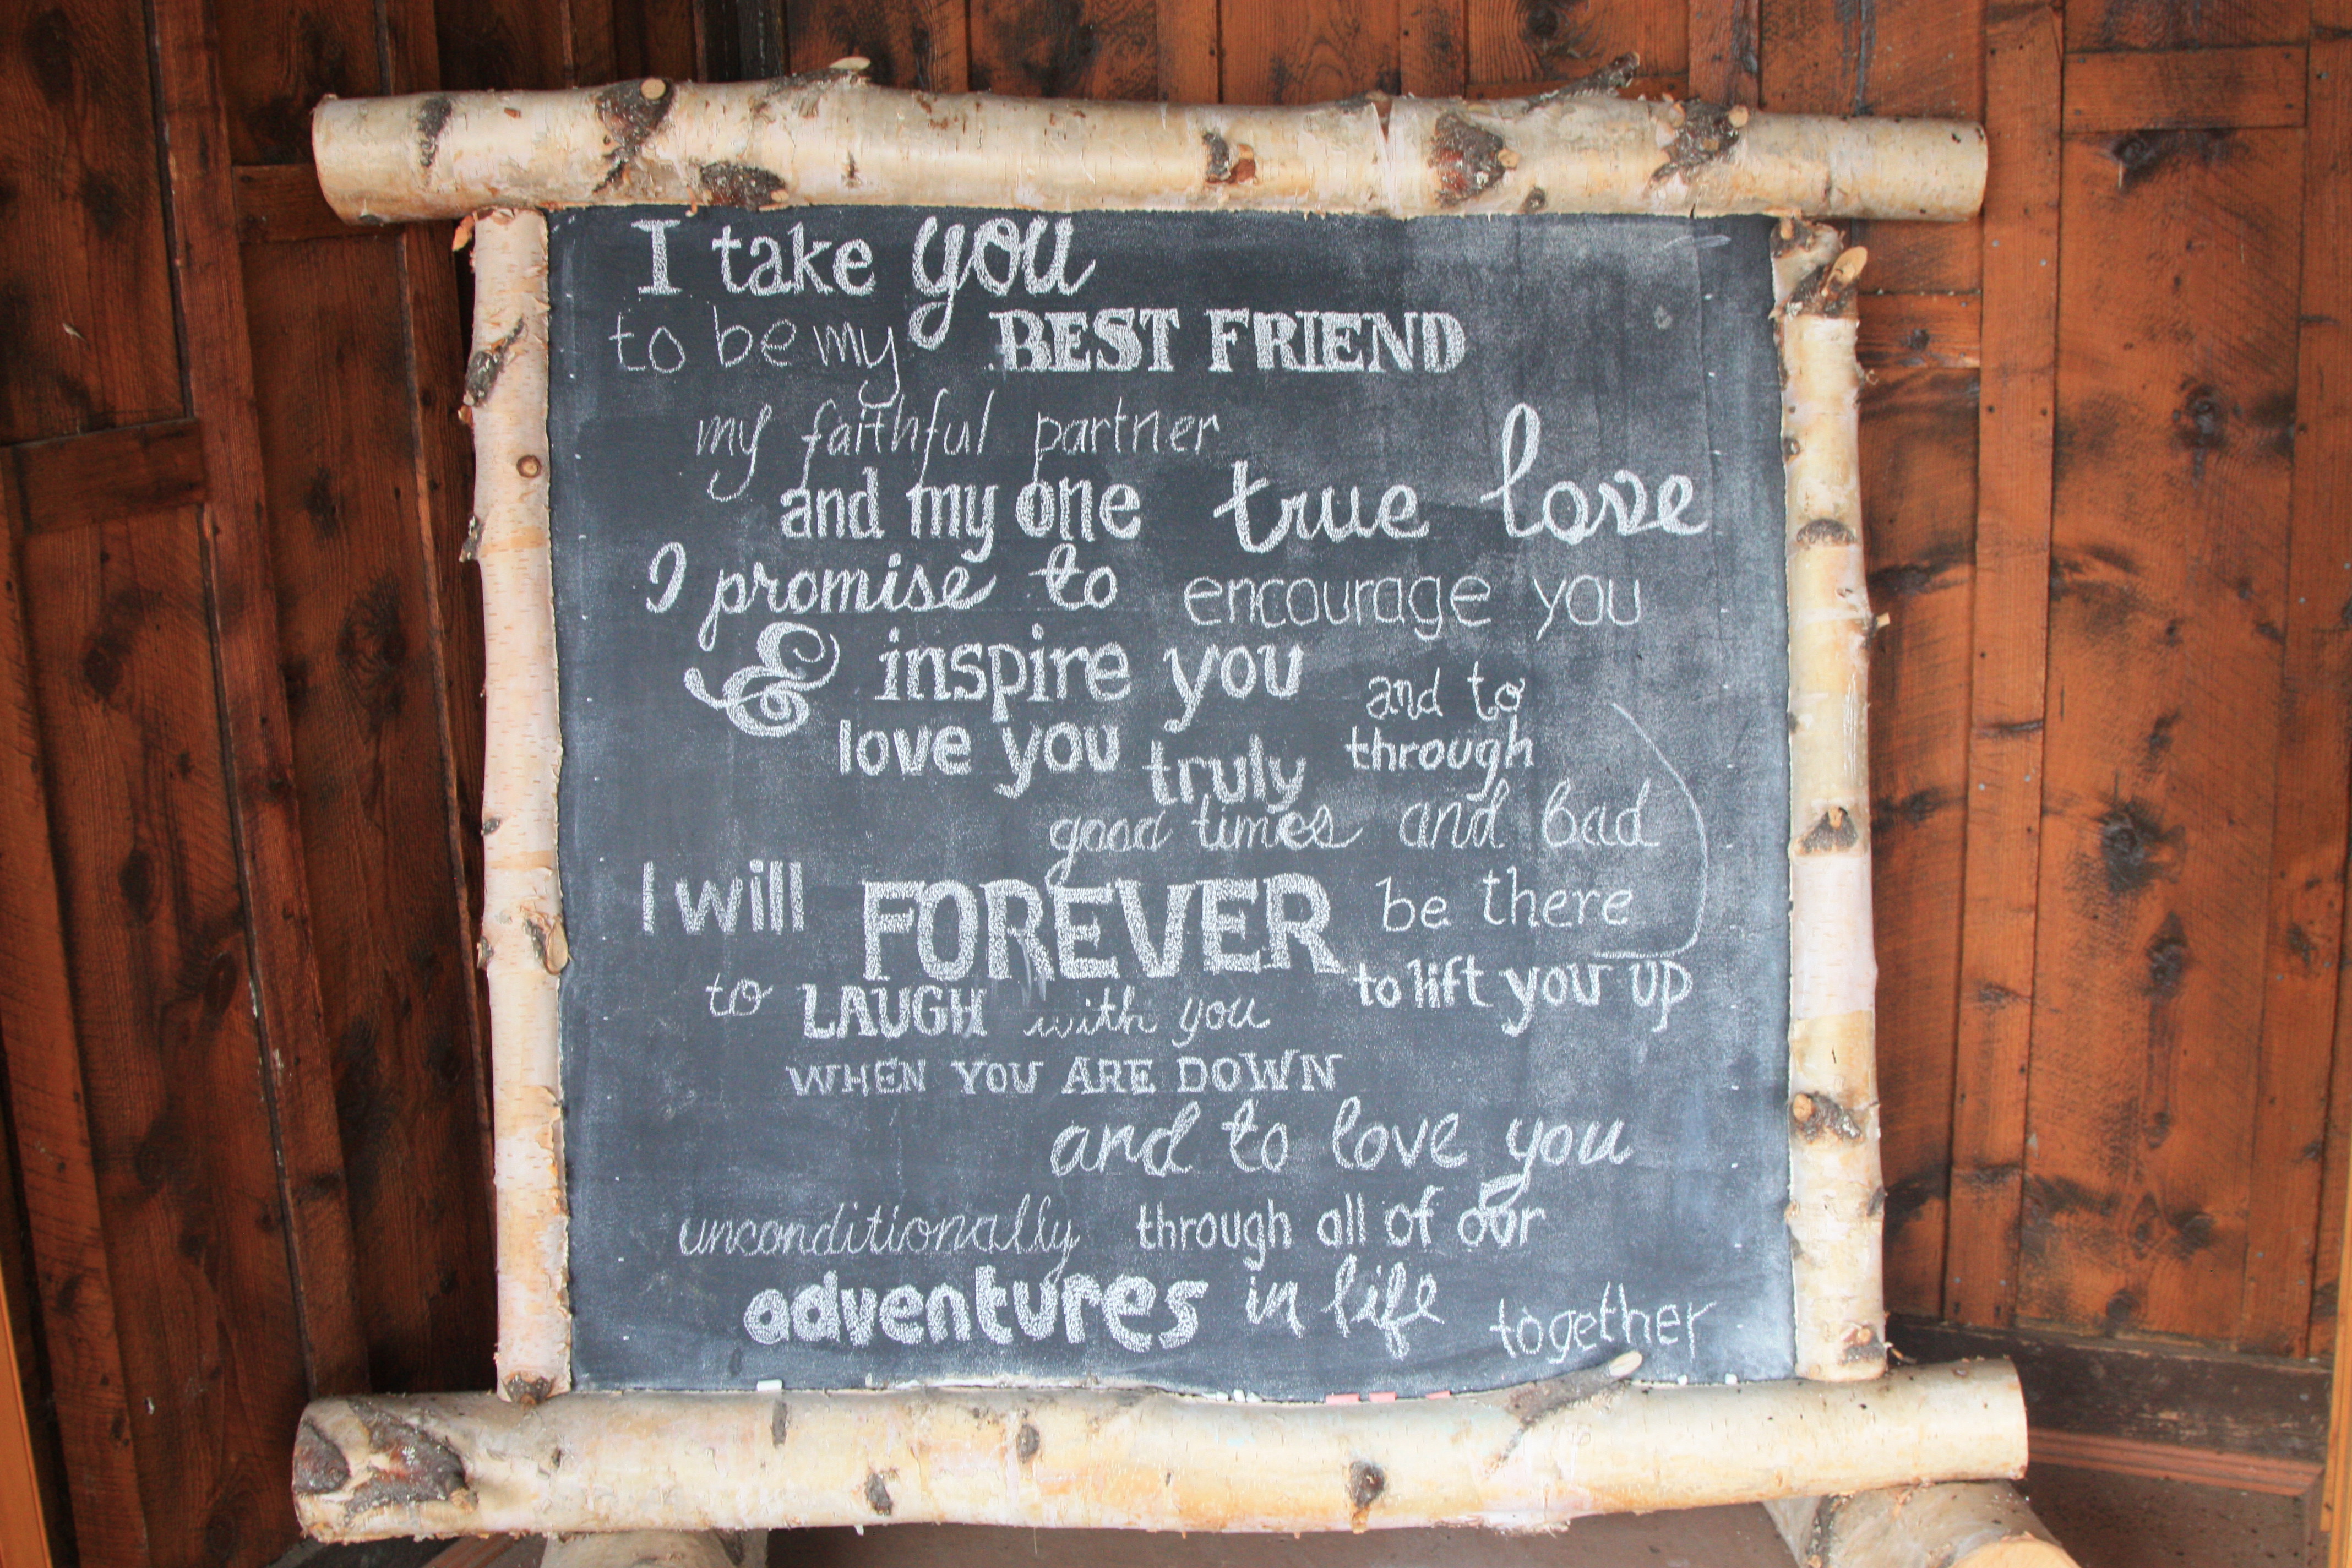 I take you
to be my BEST FRIEND
my faithful partner
and my one true love
I promise to encourage you
& inspire you and to
love you truly through
good times and bad
I will FOREVER be there
to LAUGH with you to lift you up
WHEN YOU ARE DOWN
and to love you
unconditionally through all of our
adventures in life together